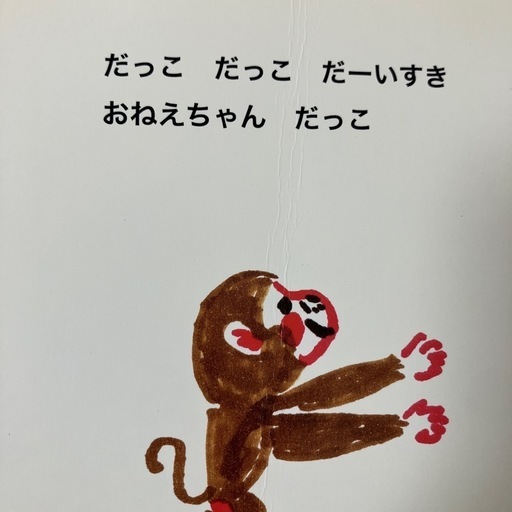 だっこ　だっこ　だーいすき
おねえちゃん　だっこ